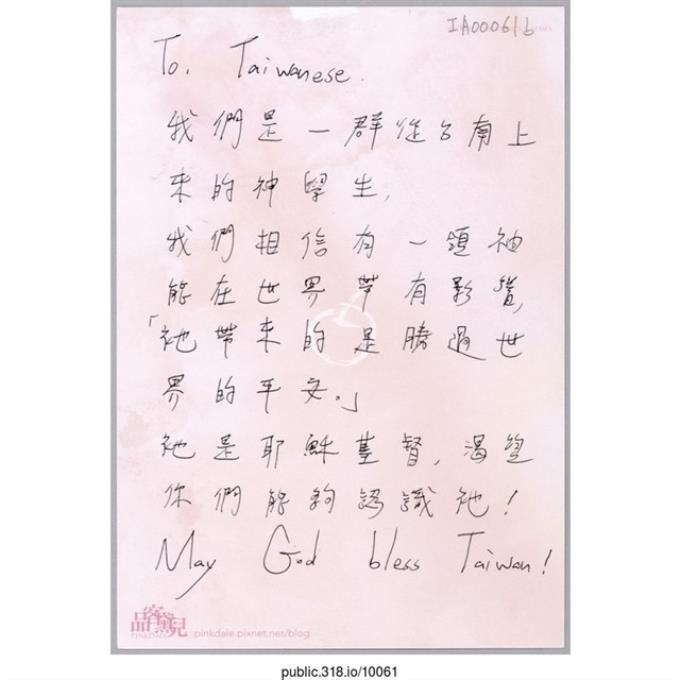 IA00061b
To. Taiwanese.
我們是一群從台南上
來的神學生,
我們相信有一領袖
能在世界帶有影響,
「祂帶來的是勝過世
界的平安。」
祂是耶穌基督,渴望
你們能夠認識祂!
May God bless Taiwan!
品客黛兒
PINKDALE
pinkdale.pixnet.net/blog
public.318.io/10061